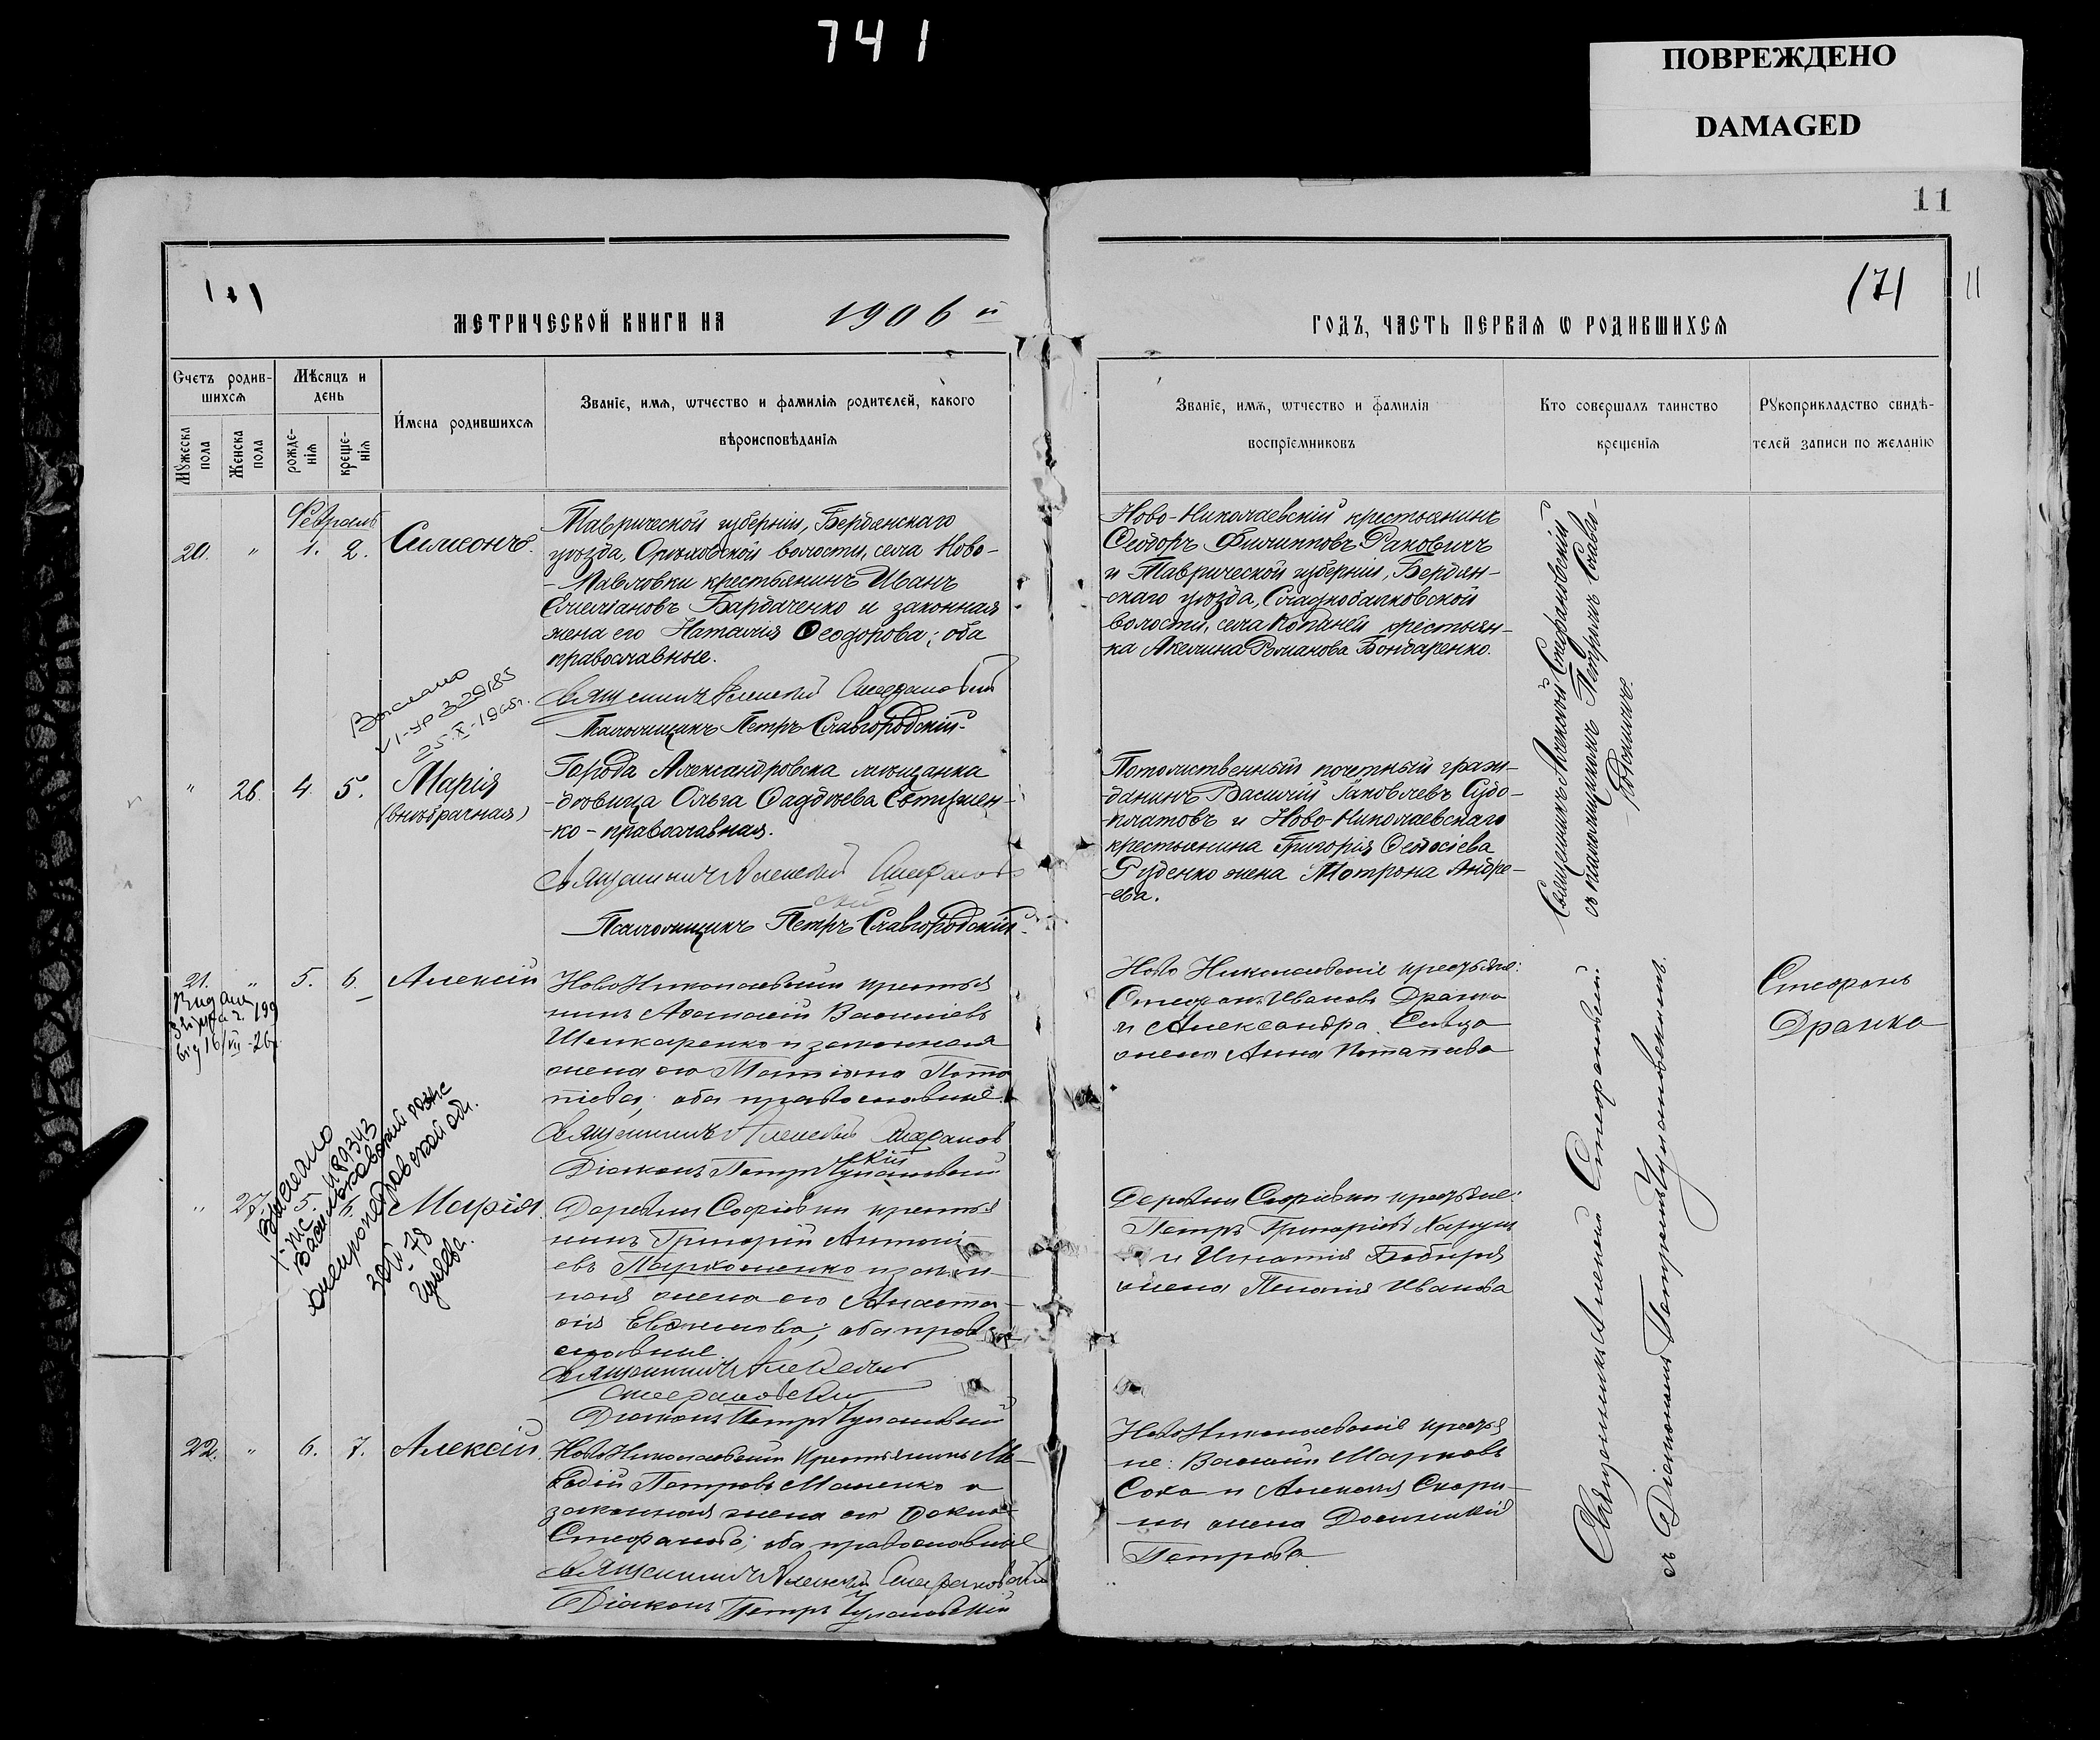 741
ПОВРЕЖДЕНО
DAMAGED
11
11
(7)
МЕТРИЧЕСКОЙ КНИГИ НА 1906й
ГОДЪ, ЧАСТЬ ПЕРВАЯ Ѡ РОДИВШИХСЯ
Счетъ родив-
шихся
Мѣсяцъ и
день
Мꙋжеска
пола
Женска
пола
рожде-
нія
креще-
нія
Имена родившихся
Званіе, имя, ѡтчество и фамилія родителей, какого
вѣроисповѣданія
Званіе, имя, ѡтчество и фамилія
воспріемниковъ
Кто совершалъ таинство
крещенія
Рꙋкоприкладство свидѣ-
телей записи по желанію
Февраль
20. " 1. 2. Симеонъ.
Таврической губерніи, Бердянскаго
уѣзда, Орѣховской волости, села Ново-
-Павловки крестьянинъ Иванъ
Емеліановъ Бардаченко и законная
жена его Наталія Ѳеодорова; оба
православные.
Священникъ Алексій Стефановскій
Псаломщикъ Петръ Славгородскій.
Ново-Николаевскій крестьянинъ
Ѳеодоръ Филипповъ Раковичъ
и Таврической губерніи, Бердян-
-скаго уѣзда, Сладкобалковской
волости, села Копаней крестьян-
-ка Акелина Романова Бондаренко.
Священникъ Алексій Стефановскій
съ псаломщикомъ Петромъ Славго-
родскимъ.
Выслано
VI-УР 329185
25.X-1965г.
" 26. 4. 5. Марія
(внѣбрачная)
Города Александровска мѣщанка
-дѣвица Ольга Ѳаддѣева Евтушен-
-ко - православная.
Священникъ Алексій Стефановскій
Псаломщикъ Петръ Славгородскій.
Потомственный почетный граж-
-данинъ Василій Іаковлевъ Судо-
-платовъ и Ново-Николаевскаго
крестьянина Григорія Ѳеодосіева
Руденко жена Мотрона Андре-
-ева.
21. " 5. 6. Алексій
16/VII-26
Ново Николаевскій крестья
нинъ Аѳанасій Василіевъ
Шинкаренко и законная
жена его Татіана Пота
піева; оба православные.
Священникъ Алексій Стефановскій
Діаконъ Петръ
Ново Николаевскіе крестьяне:
Стефанъ Ивановъ Драика
и Александра
жена Анна Потапіева
Стефанъ
Драика
Выслано
Васильковский
Днепропетровской обл.
" 27. 5. 6. Марія.
Деревни Софіевки крестья
нинъ Григорій Антоні
евъ Пархоменко и закон-
ная жена его Анаста-
сія Евѳимова; оба право
славные
Священникъ Алексій
Стефановскій
Діаконъ Петръ
Деревни Софіевки крестьяне:
Петръ Григоріевъ
и Игнатія
жена Пелагія Иванова
22. " 6. 7. Алексій.
НовоНиколаевскій крестьянинъ Ме-
ѳодій Петровъ Масенко и
законная жена его Ѳекла
Стефанова; оба православные
Священникъ Алексій Стефановскій
Діаконъ Петръ
НовоНиколаевскіе крестья
не: Василій Марковъ
Соха и Алексія Скори-
ны жена Домникія
Петрова
Священникъ Алексій Стефановскій
съ Діакономъ Петромъ